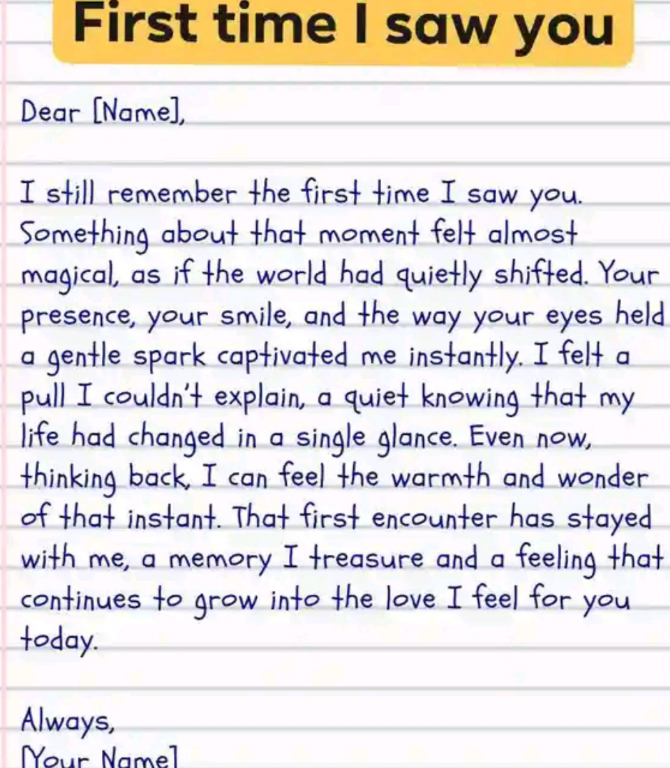 First time I saw you
Dear [Name],
I still remember the first time I saw you.
Something about that moment felt almost
magical, as if the world had quietly shifted. Your
presence, your smile, and the way your eyes held
a gentle spark captivated me instantly. I felt a
pull I couldn't explain, a quiet knowing that my
life had changed in a single glance. Even now,
thinking back, I can feel the warmth and wonder
of that instant. That first encounter has stayed
with me, a memory I treasure and a feeling that
continues to grow into the love I feel for you
today.
Always,
[Your Name]